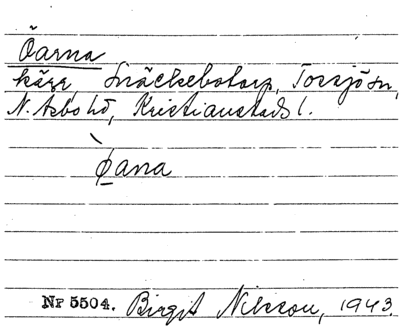 Öarna
kärr, Snäckebotorp, Torsjö sn,
N. Åsbo hd, Kristianstads l.
ø̱̀ana
Nr 5504. Birgit Nilsson, 1943.